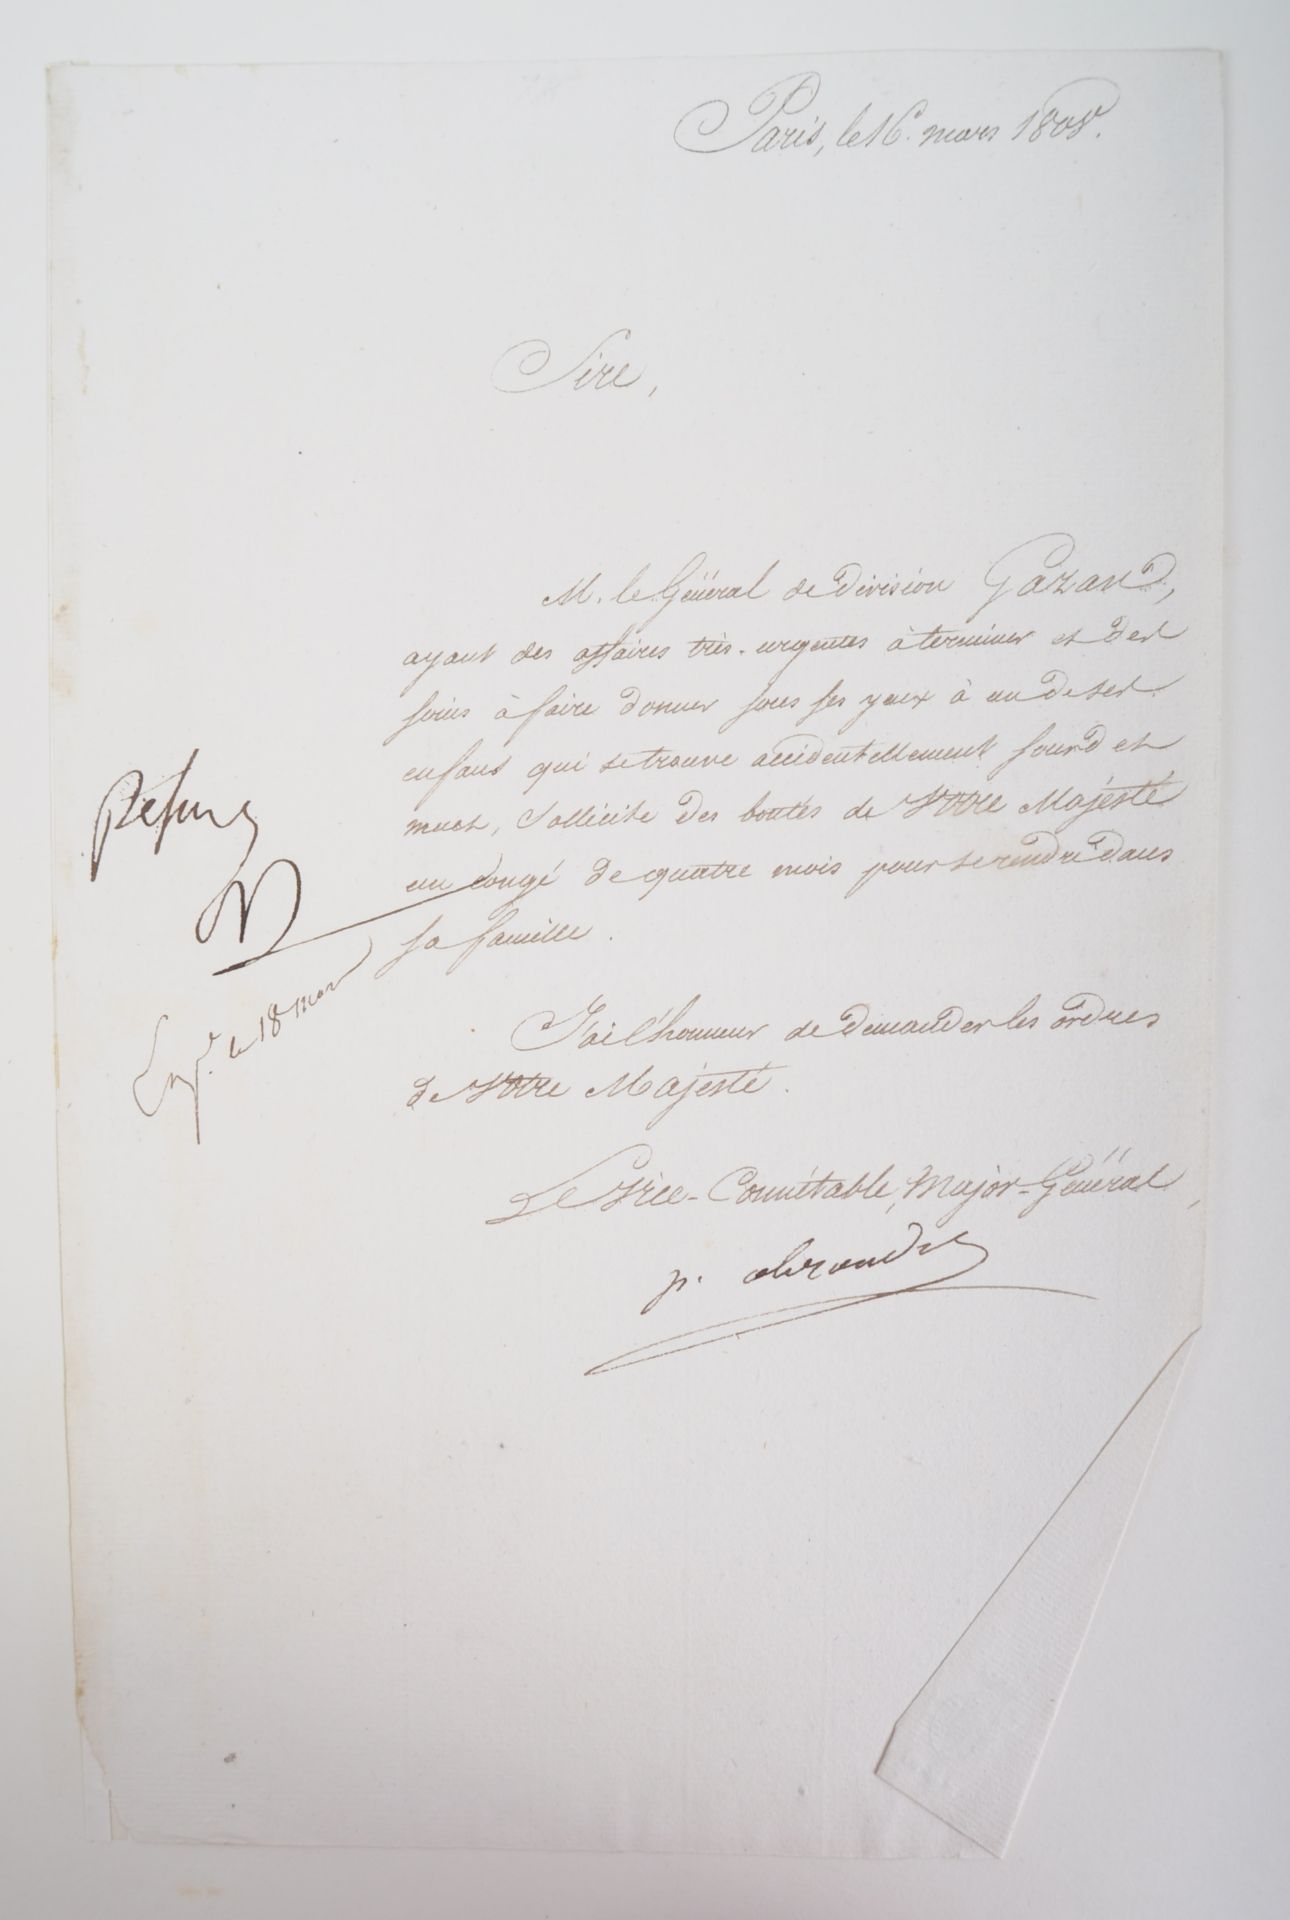 Paris, le 16. mars 1808.
Sire,
M. le Général de division Gazan,
ayant des affaires très-urgentes à terminer et des
soins à faire donner sous ses yeux à un de ses
enfans qui se trouve accidentellement sourd et
muet, sollicite des bontés de Votre Majesté
un congé de quatre mois pour se rendre dans
sa famille.
Refusé
N
Exp. le 18 mars
J'ai l'honneur de demander les ordres
de Votre Majesté.
Le Vice-Connétable, Major-Général,
p. alexandre